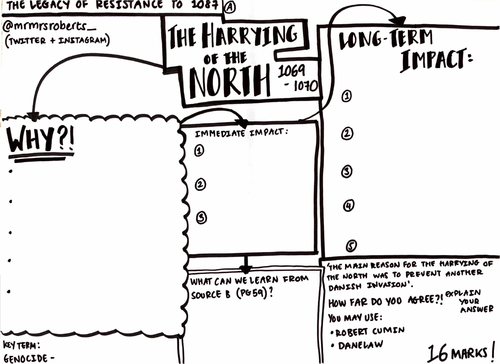 THE LEGACY OF RESISTANCE TO 1087 A
@mrmrsroberts_
(TWITTER + INSTAGRAM)
THE HARRYING
OF THE
NORTH
1069
- 1070
LONG-TERM
IMPACT:
1
2
3
4
5
WHY?!
IMMEDIATE IMPACT:
1
2
3
WHAT CAN WE LEARN FROM
SOURCE B (PG59)?
'THE MAIN REASON FOR THE HARRYING OF
THE NORTH WAS TO PREVENT ANOTHER
DANISH INVASION'.
HOW FAR DO YOU AGREE?! EXPLAIN
YOUR
ANSWER
YOU MAY USE:
• ROBERT CUMIN
• DANELAW
16 MARKS!
KEY TERM:
GENOCIDE -